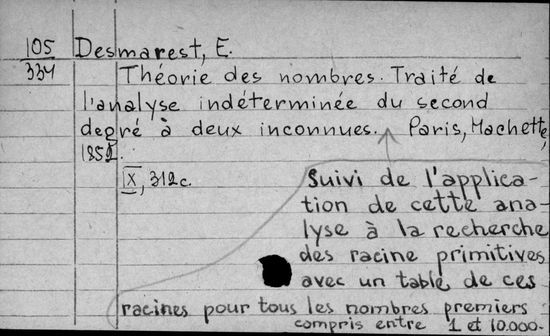 105 Desmarest, E.
334 Théorie des nombres. Traité de
l'analyse indéterminée du second
degré à deux inconnues. Paris, Hachette,
1852.
IX, 312c.
Suivi de l'applica-
tion de cette ana-
lyse à la recherche
des racine primitives
avec un table de ces
racines pour tous les nombres premiers
compris entre 1 et 10.000.